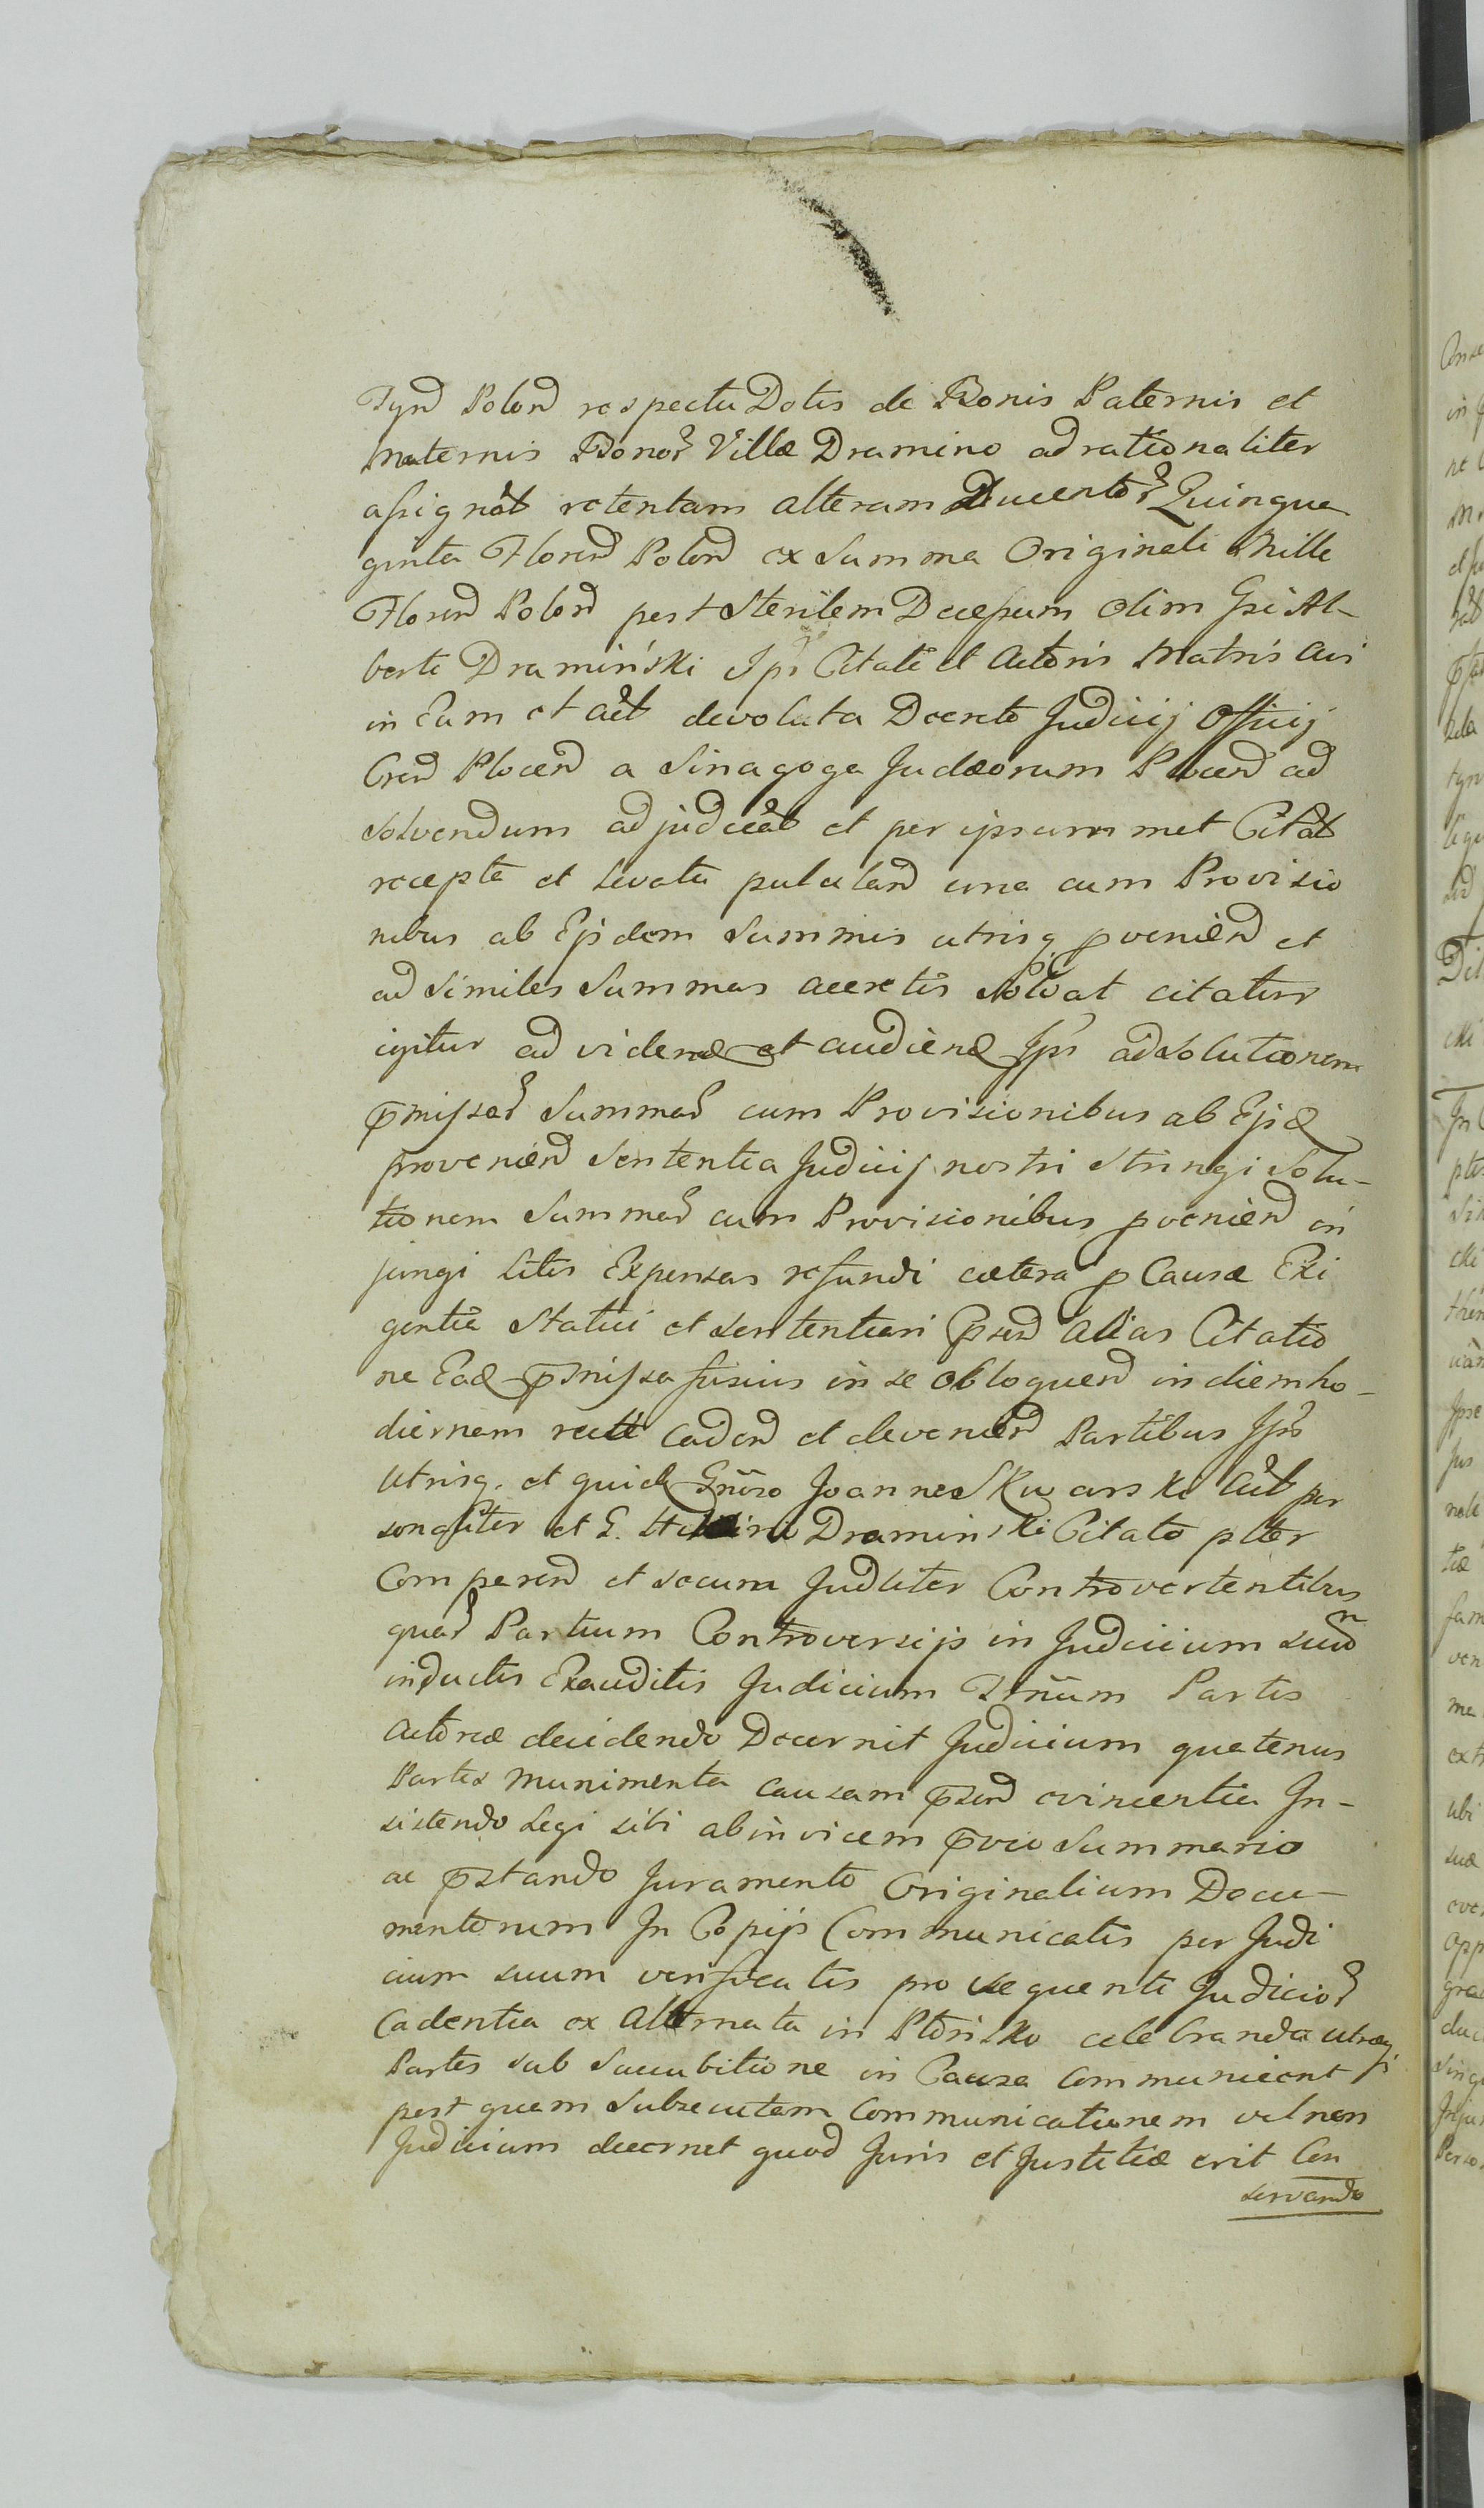 Tynd Polond respectu Dotis de Bonis Paternis et
Maternis Bonor Villæ Dramino ad rationaliter
assignat retentam alteram Ducentor Quinqua
ginta Florend Polond ex Summa Originali Mille
Florend Polond post Sterilem Decessum olim Gsi Al-
berti Dramiński Ips Citati et Actoris Matris avi
in Eum et act devoluta Decreto Judicij Officij
Crend Plocend a Sinagoga Judæorum Plocend ad
solvendum adjudicat et per ipsummet Citat
recepta et levata putuland una cum Provisio
nibus ab Ejsdem Summis utrisq pveniend et
ad similes Summas accretis solvat citatur
igitur ad videnđ et audienđ Ips ad solutionem
pmissar Summar cum Provisionibus ab Ejsđ
proveniend Sententia Judicij nostri Stringi Solu-
tionem Summar cum Provisionibus pveniend in
jungi Litis Expensas refundi cætera p Causæ Exi
gentia Statui et sententiari psend alias Citatio
ne Eađ pmissa fusius in se obloquend in diem ho-
diernam recte cadend et deveniend Partibus Ips
Utrisq. et quidem Gnoso Joanne Skwarski Act per
sonaliter et G. Draminski Citato pltr
Comparend et secum Judliter Controvertentibus
quar Partium Controversijs in Judicium suum
inductis Exauditis Judicium Trnum Partis
Actoreæ decidendo Decernit Judicium quatenus
Partes Munimenta causam psend evincentia In-
sistendo Legi sibi ab invicem pvio Summario
ac pstando Juramento Originalium Docu-
mentorum In Copijs Communicatis per Judi
cium suum verificatis pro sequenti Judicior
Cadentia ex Alternata in Płońsko celebranda utræq
Partes sub Succubitione in Causa Communicent
post quam Subsecutam Communicationem vel non
Judicium decernet quod Juris et Justitiæ erit Con
servando